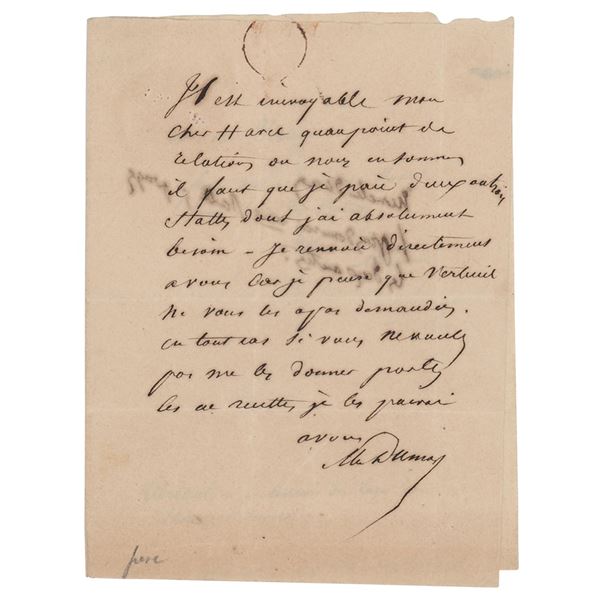 Il est incroyable mon
cher Harel qu'au point de
relations ou nous en sommes
il faut que je paie deux ou trois
stalles dont j'ai absolument
besoin – Je renvoie directement
a vous car je pense que Verteuil
ne vous les a pas demandées.
en tout cas si vous ne voulez
pas me les donner portez
les en recettes je les paierai
a vous
Alex Dumas
pere